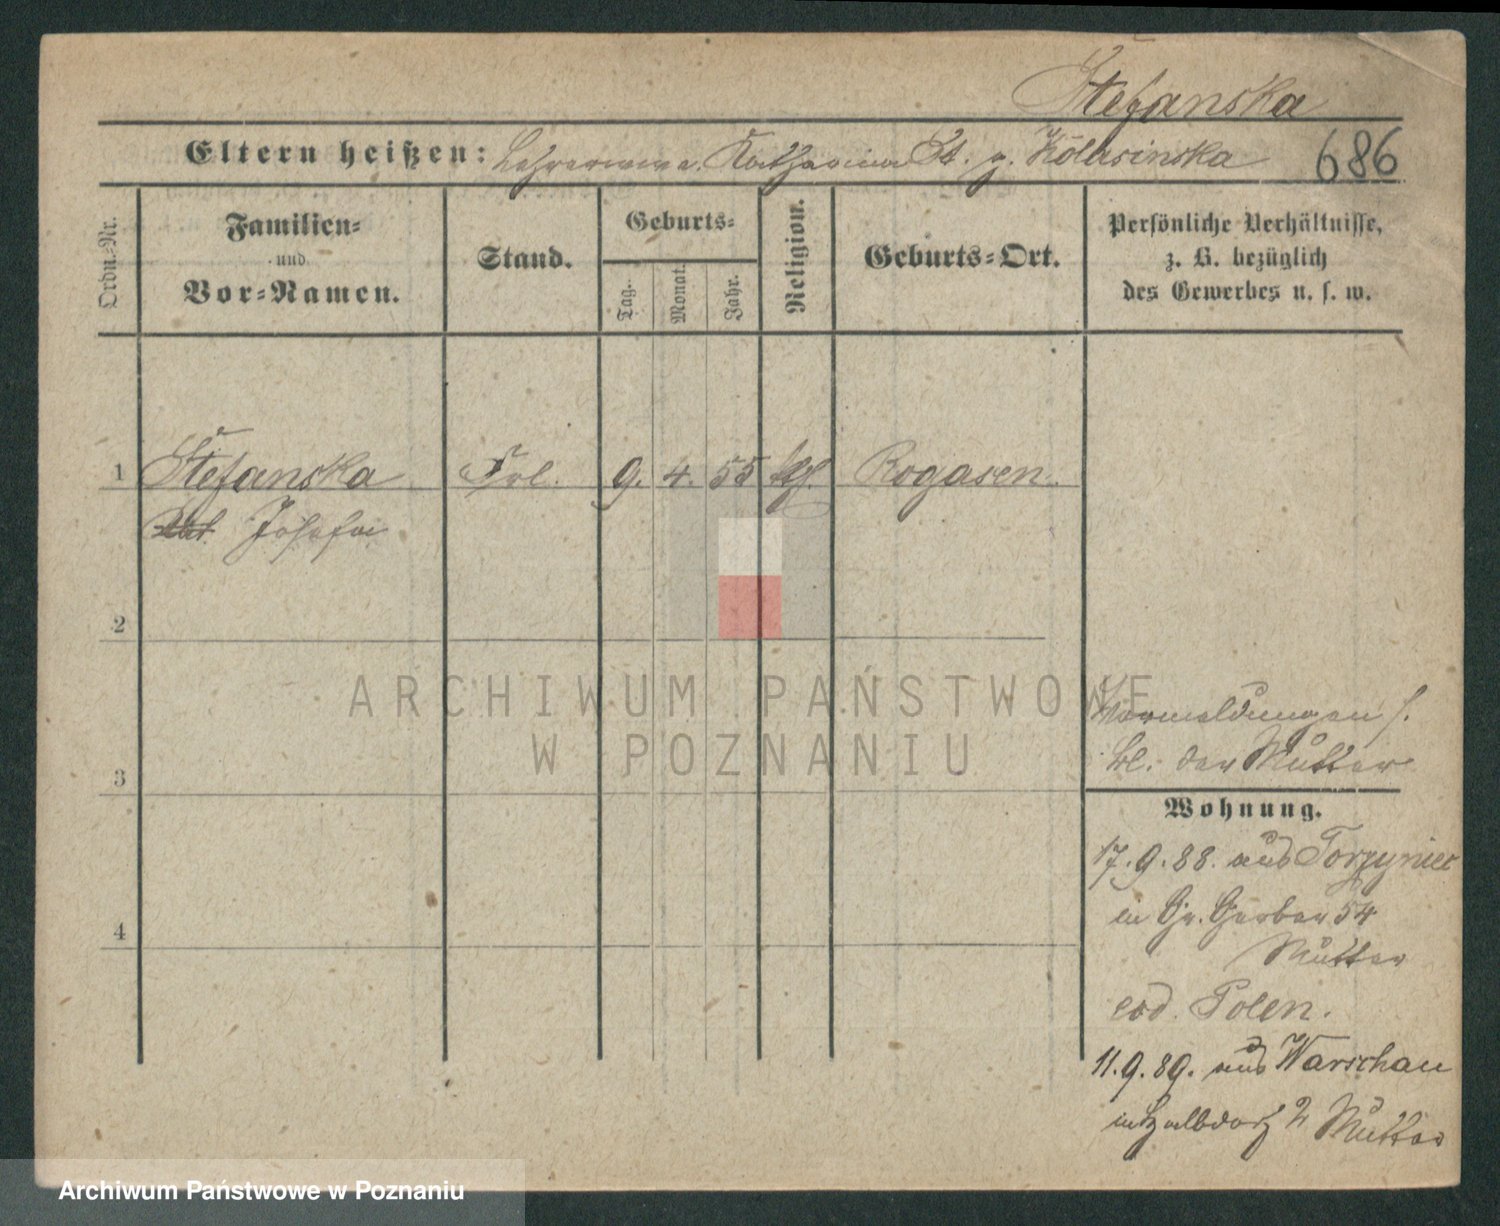 Stefanska
Eltern heißen: Lehrerwwe. Katharina St. g. Kolasinska 686
Ordn.-Nr.
Familien-
und
Vor-Namen.
Stand.
Geburts-
Tag.
Monat.
Jahr.
Religion.
Geburts-Ort.
Persönliche Verhältnisse,
z. B. bezüglich
des Gewerbes u. s. w.
1 Stefanska Frl. 9. 4. 55 kath. Rogasen.
Josefa
2
3
4
ARCHIWUM PAŃSTWOWE
W POZNANIU
Vormeldungen s.
bl. der Mutter
Wohnung.
17.9.88. aus
in Gr. Gerber 54
Mutter
eod. Polen.
11.9.89. aus Warschau
in Halbdorf 2 Mutter
Archiwum Państwowe w Poznaniu